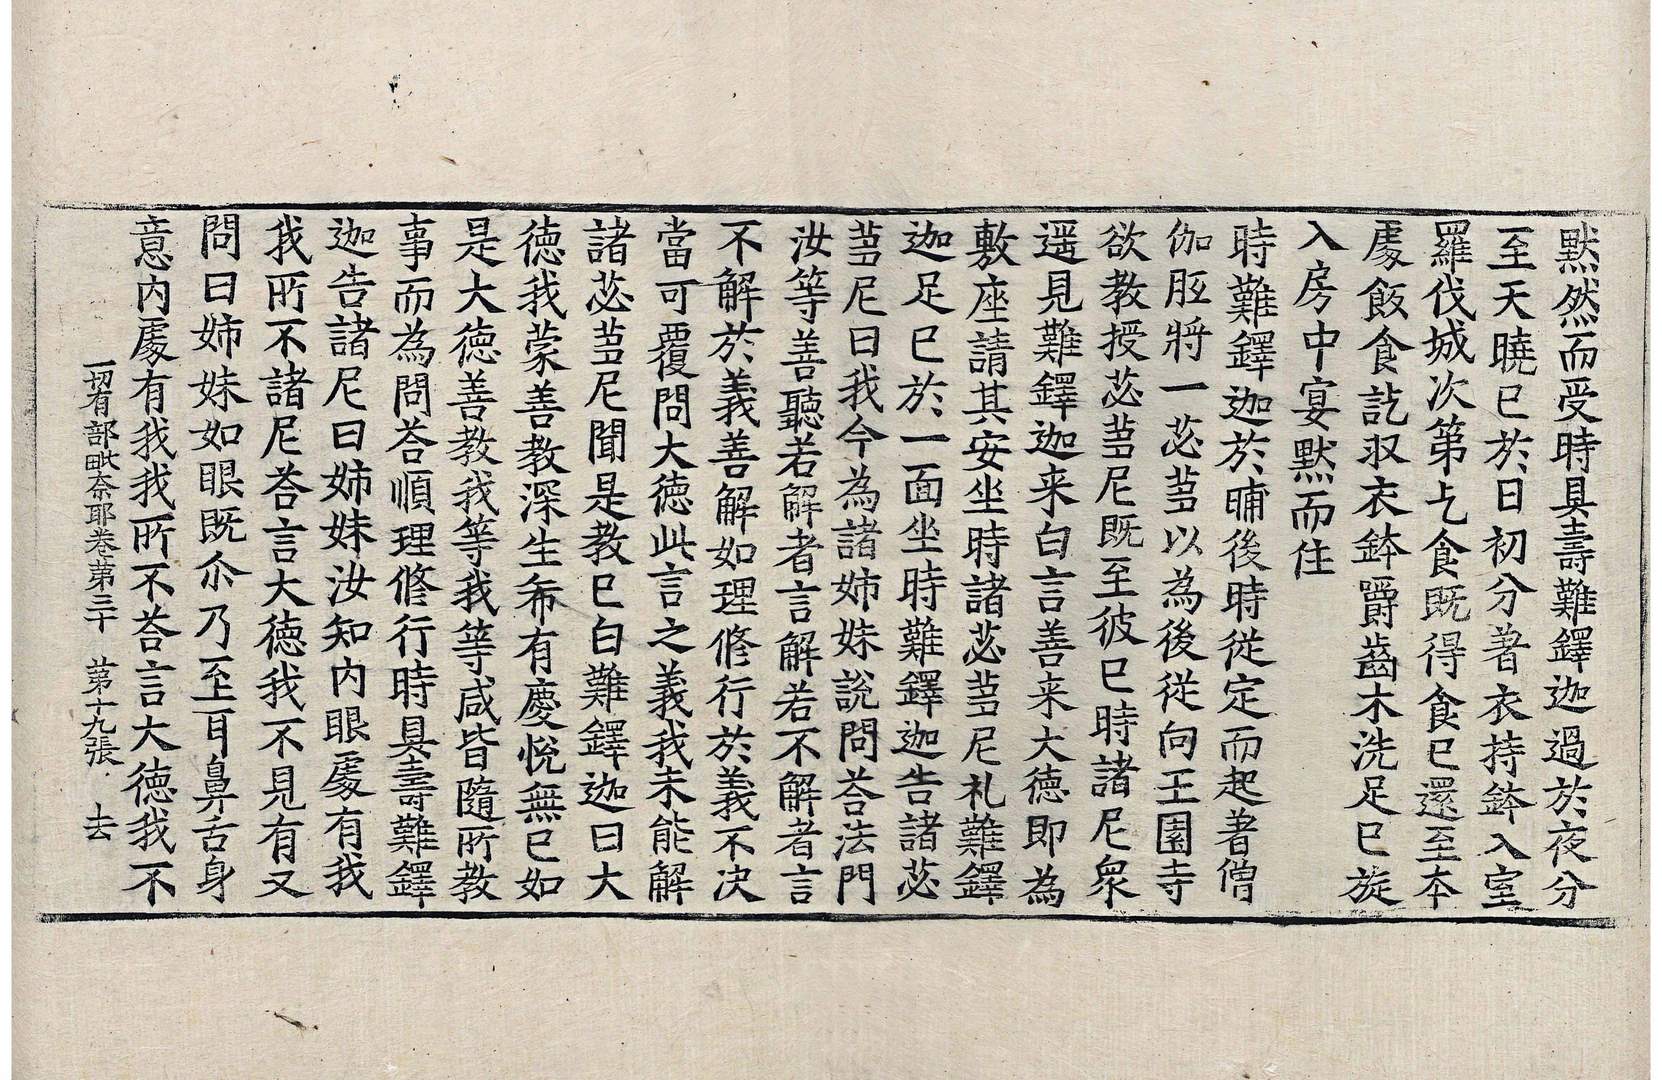 默然而受時具壽難鐸迦過於夜分
至天曉已於日初分著衣持鉢入室
羅伐城次第乞食既得食已還至本
處飯食訖収衣鉢嚼齒木洗足已旋
入房中宴默而住
時難鐸迦於晡後時從定而起著僧
伽胝將一苾芻以為後從向王園寺
欲教授苾芻尼既至彼已時諸尼衆
遥見難鐸迦来白言善来大德即為
敷座請其安坐時諸苾芻尼礼難鐸
迦足已於一面坐時難鐸迦告諸苾
芻尼曰我今為諸姉妹說問荅法門
汝等善聽若解者言解若不解者言
不解於義善解如理修行於義不决
當可覆問大德此言之義我未能解
諸苾芻尼聞是教已白難鐸迦曰大
德我蒙善教深生希有慶悅無已如
是大德善教我等我等咸皆隨所教
事而為問荅順理修行時具壽難鐸
迦告諸尼曰姉妹汝知內眼處有我
我所不諸尼荅言大德我不見有又
問曰姉妹如眼既尒乃至耳鼻舌身
意內處有我我所不荅言大德我不
一切有部毗奈耶卷第三十 第十九張 去